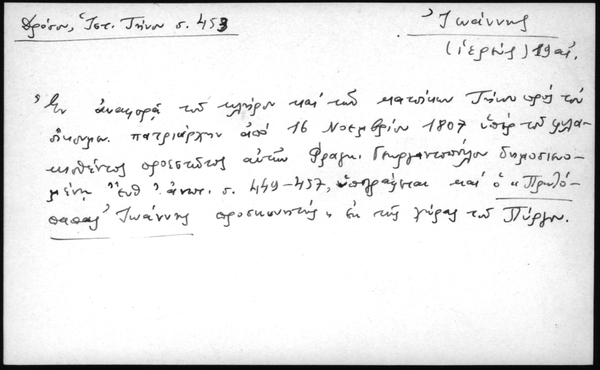 Δρόσου, Ἱστ. Τήνου σ. 453
Ἰωάννης
(ἱερεύς) 19 αἰ.
Ἐν ἀναφορᾷ τοῦ κλήρου καὶ τῶν κατοίκων Τήνου πρὸς τὸν
οἰκουμ. πατριάρχην ἀπὸ 16 Νοεμβρίου 1807 ὑπὲρ τοῦ φυλα-
κισθέντος προεστῶτος αὐτῶν Φραγκ. Γεωργαντοπούλου δημοσιευο-
μένῃ ἔνθ' ἀνωτ. σ. 449-457, ὑπογράφεται καὶ ὁ «Πρωτό-
παπας Ἰωάννης προσκυνητής» ἐκ τῆς χώρας τοῦ Πύργου.